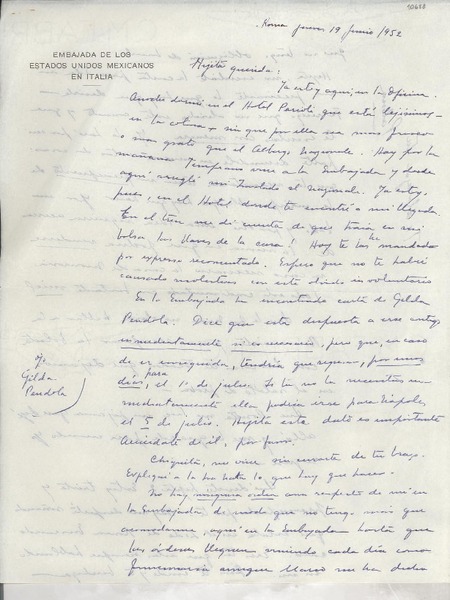 10688
Roma jueves 19 Junio/1952
EMBAJADA DE LOS
ESTADOS UNIDOS MEXICANOS
EN ITALIA
Hijita querida:
Ya estoy aquí en la Oficina.
Anoche dormí en el Hotel Parioli que está lejísimos
en la colina y sin que por ello sea más fresco
o más grato que el Albergo Nazionale. Hoy por la
mañana temprano vine a la Embajada y desde
aquí arreglé mi traslado al Nazionale. Ya estoy,
pues, en el Hotel donde te encontré a mi llegada.
En el tren me di cuenta de que traía en mi
bolsa las llaves de la casa! Hoy te las he mandado
por expreso recomendado. Espero que no te habré
causado molestias con este olvido involuntario
En la Embajada he encontrado carta de Gilda
Pendola. Dice que está dispuesta a irse contigo
inmediatamente si es necesario, pero que, en caso
de ser enseguida, tendría que regresar, por unos
días, para el 1º de julio. Si tú no la necesitas in-
mediatamente ella podría irse para Nápoles
el 5 de julio. Hijita este dato es importante
Acuérdate de él, por favor.
ojo
Gilda
Pendola
Chiquita, no vine sin envarte de tu brazo.
Expliqué a la
lo que hay que hacer.
No hay ninguna orden con respecto de mí en
la Embajada de modo que no tengo más que
acomodarme aquí en la Embajada hasta que
las órdenes lleguen viniendo cada día como
funcionaria aunque
me ha dicho